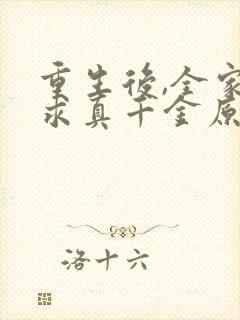 重生後,全家
求真千金原
洛十六